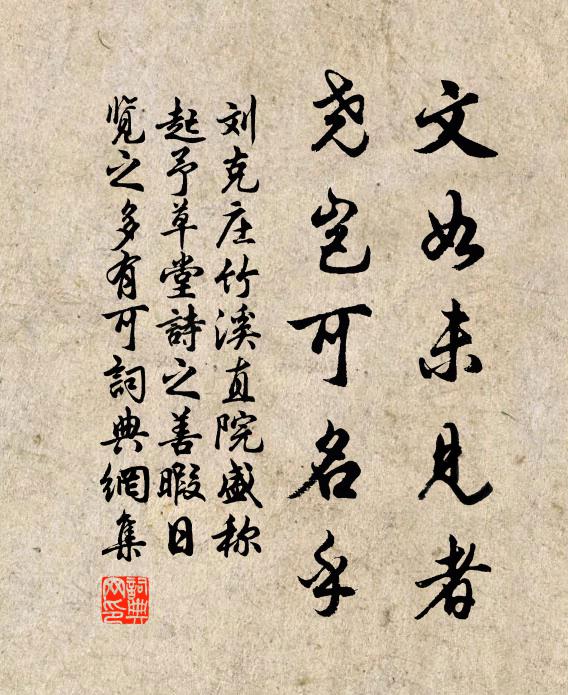 文如未见者
尧岂可名乎
刘克庄竹溪直院盛称
起予草堂詩之善暇日
览之多有可詞典網集
詞典网印